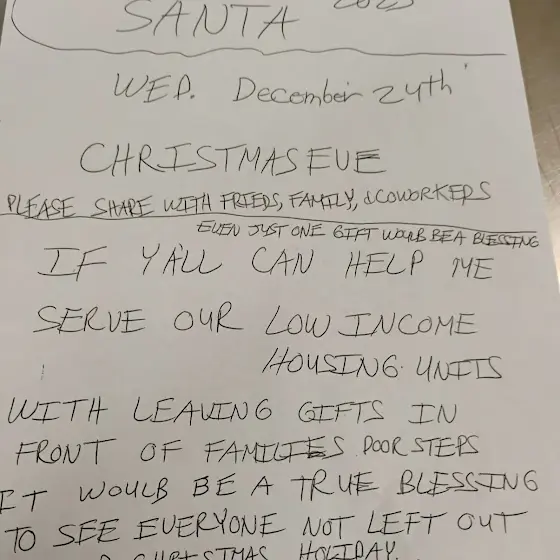 SANTA 2025
WED. December 24th
CHRISTMAS EVE
PLEASE SHARE WITH FRIEDS, FAMILY, & COWORKERS
EVEN JUST ONE GIFT WOULB BE A BLESSING
IF YA'LL CAN HELP ME
SERVE OUR LOW INCOME
HOUSING UNITS
WITH LEAVING GIFTS IN
FRONT OF FAMILIES DOOR STEPS
IT WOULB BE A TRUE BLESSING
TO SEE EVERYONE NOT LEFT OUT
CHRISTMAS HOLIDAY.